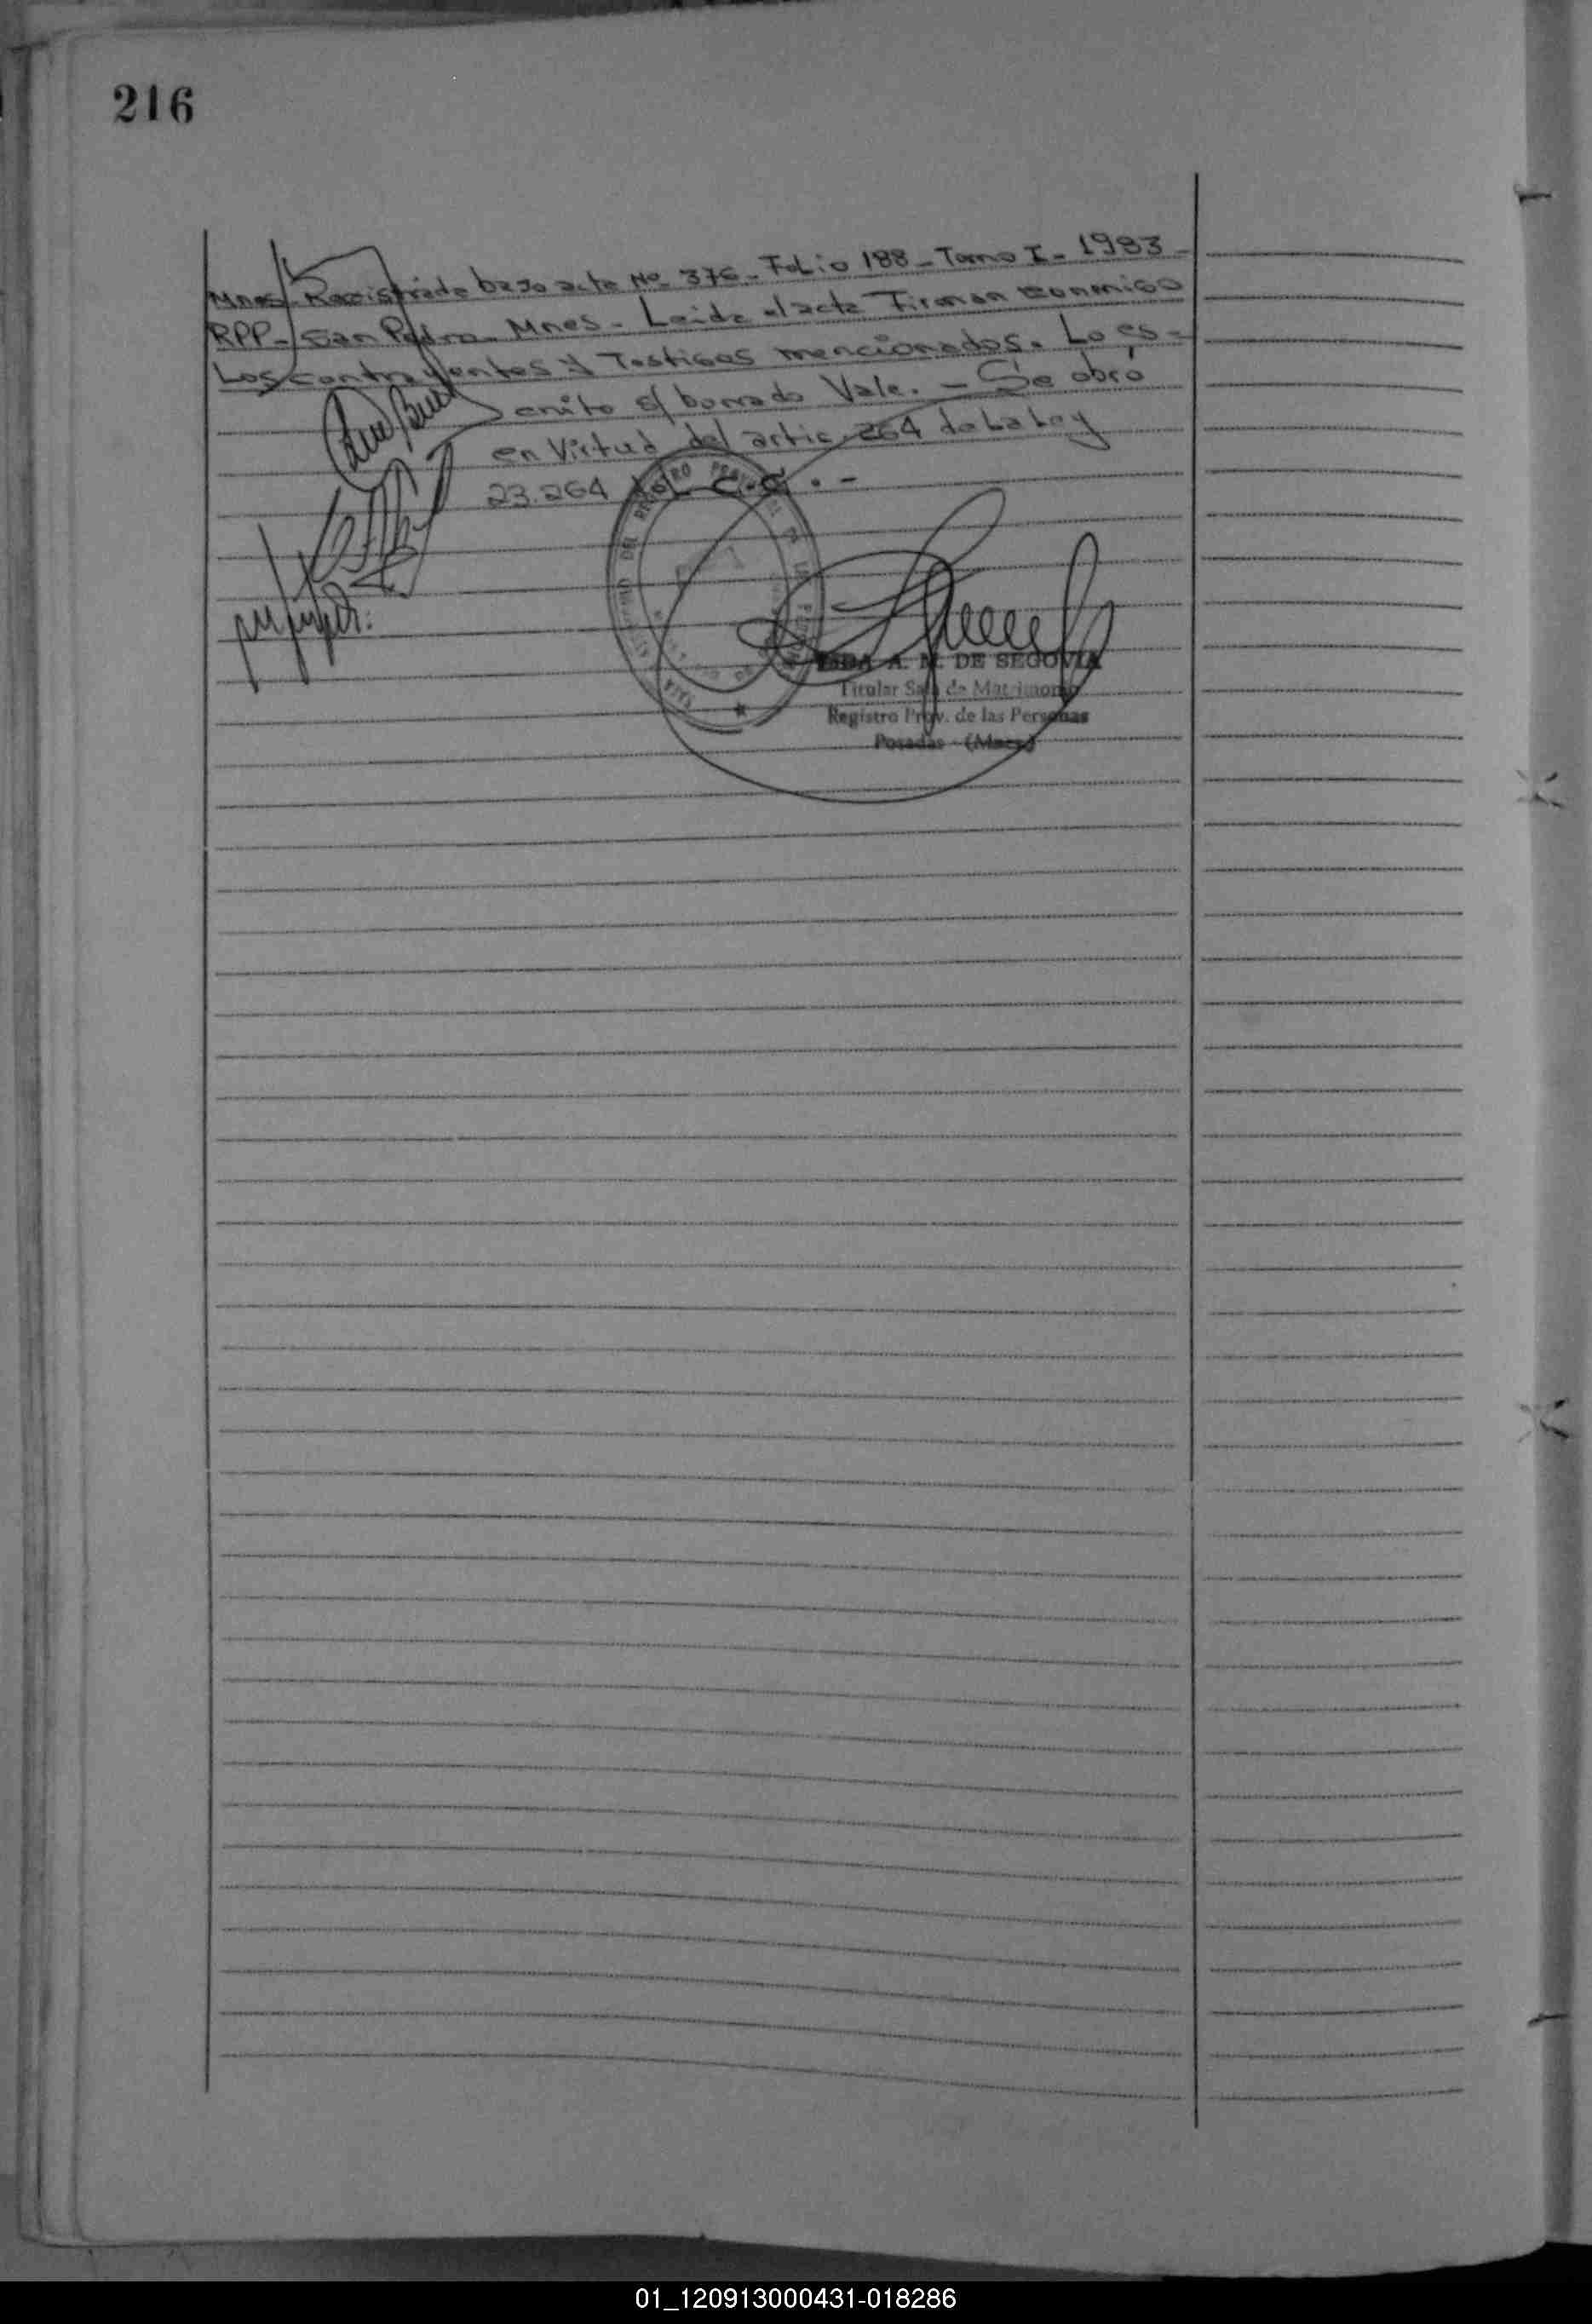 216
Mnes. Registrada bajo acta Nº 376 - Folio 188 - Tomo I - 1983 -
RPP - San Pedro - Mnes - Leida el acta Firman conmigo
Los contrayentes y Testigos mencionados. Lo es-
crito s/ borrado Vale. - Se obró
en Virtud del artic 264 de la Ley
23.264 del C.C. . -
A. M. DE SEGOVIA
Titular Sala de Matrimonio
Registro Prov. de las Personas
Posadas - (Mnes)
01_120913000431-018286